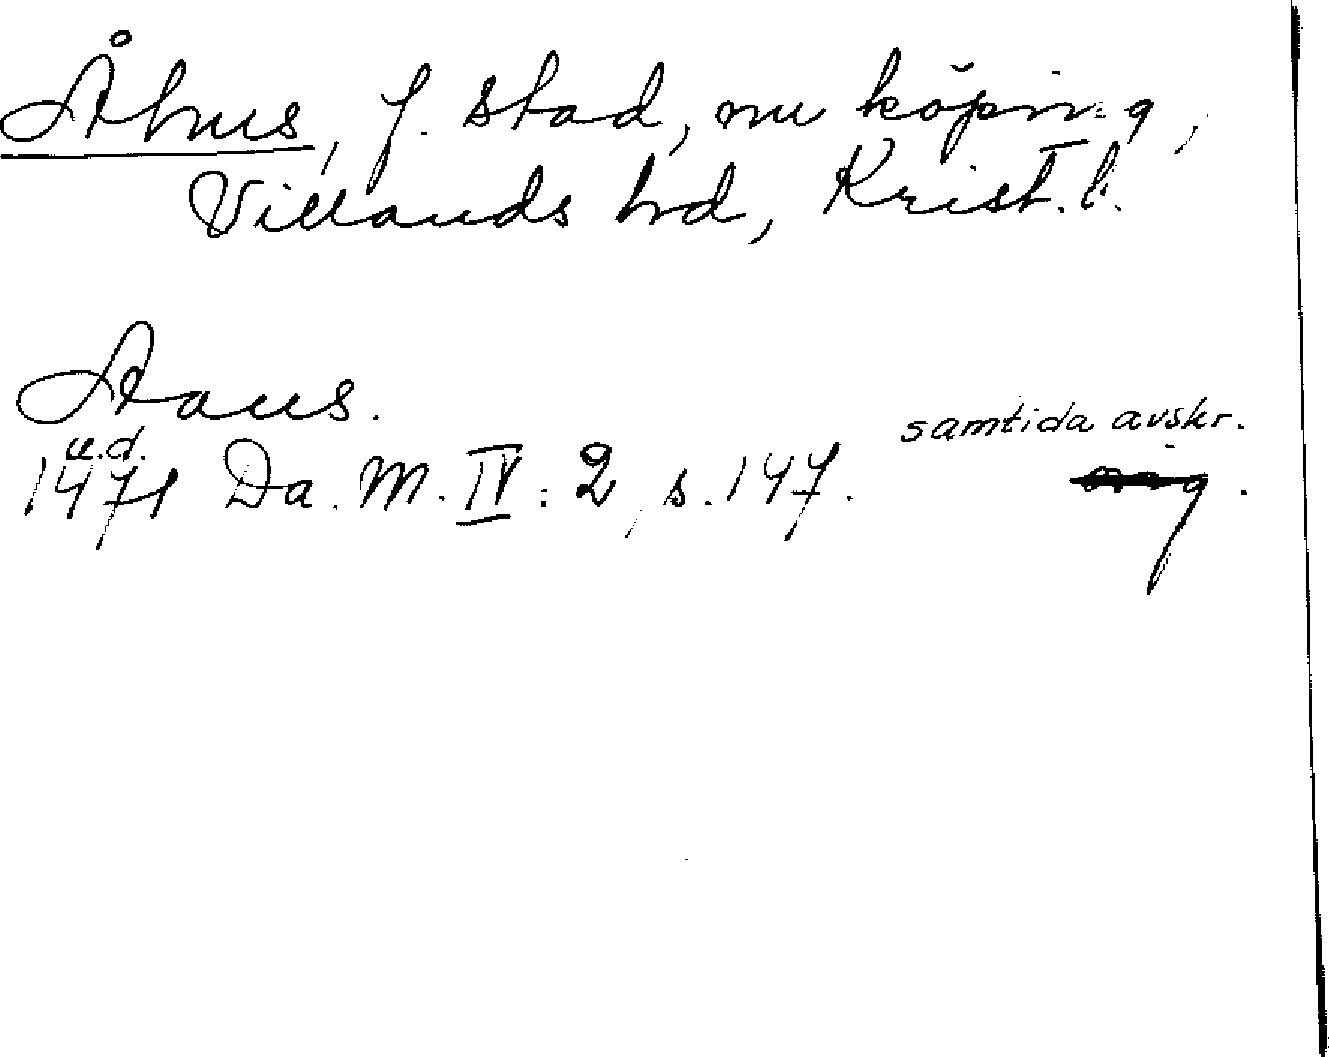 Åhus, f. stad, nu köping,
Villands hd, Krist. l.
Aaus.
u.d.
samtida avskr.
1471 Da. M. IV: 2, s. 147. orig.